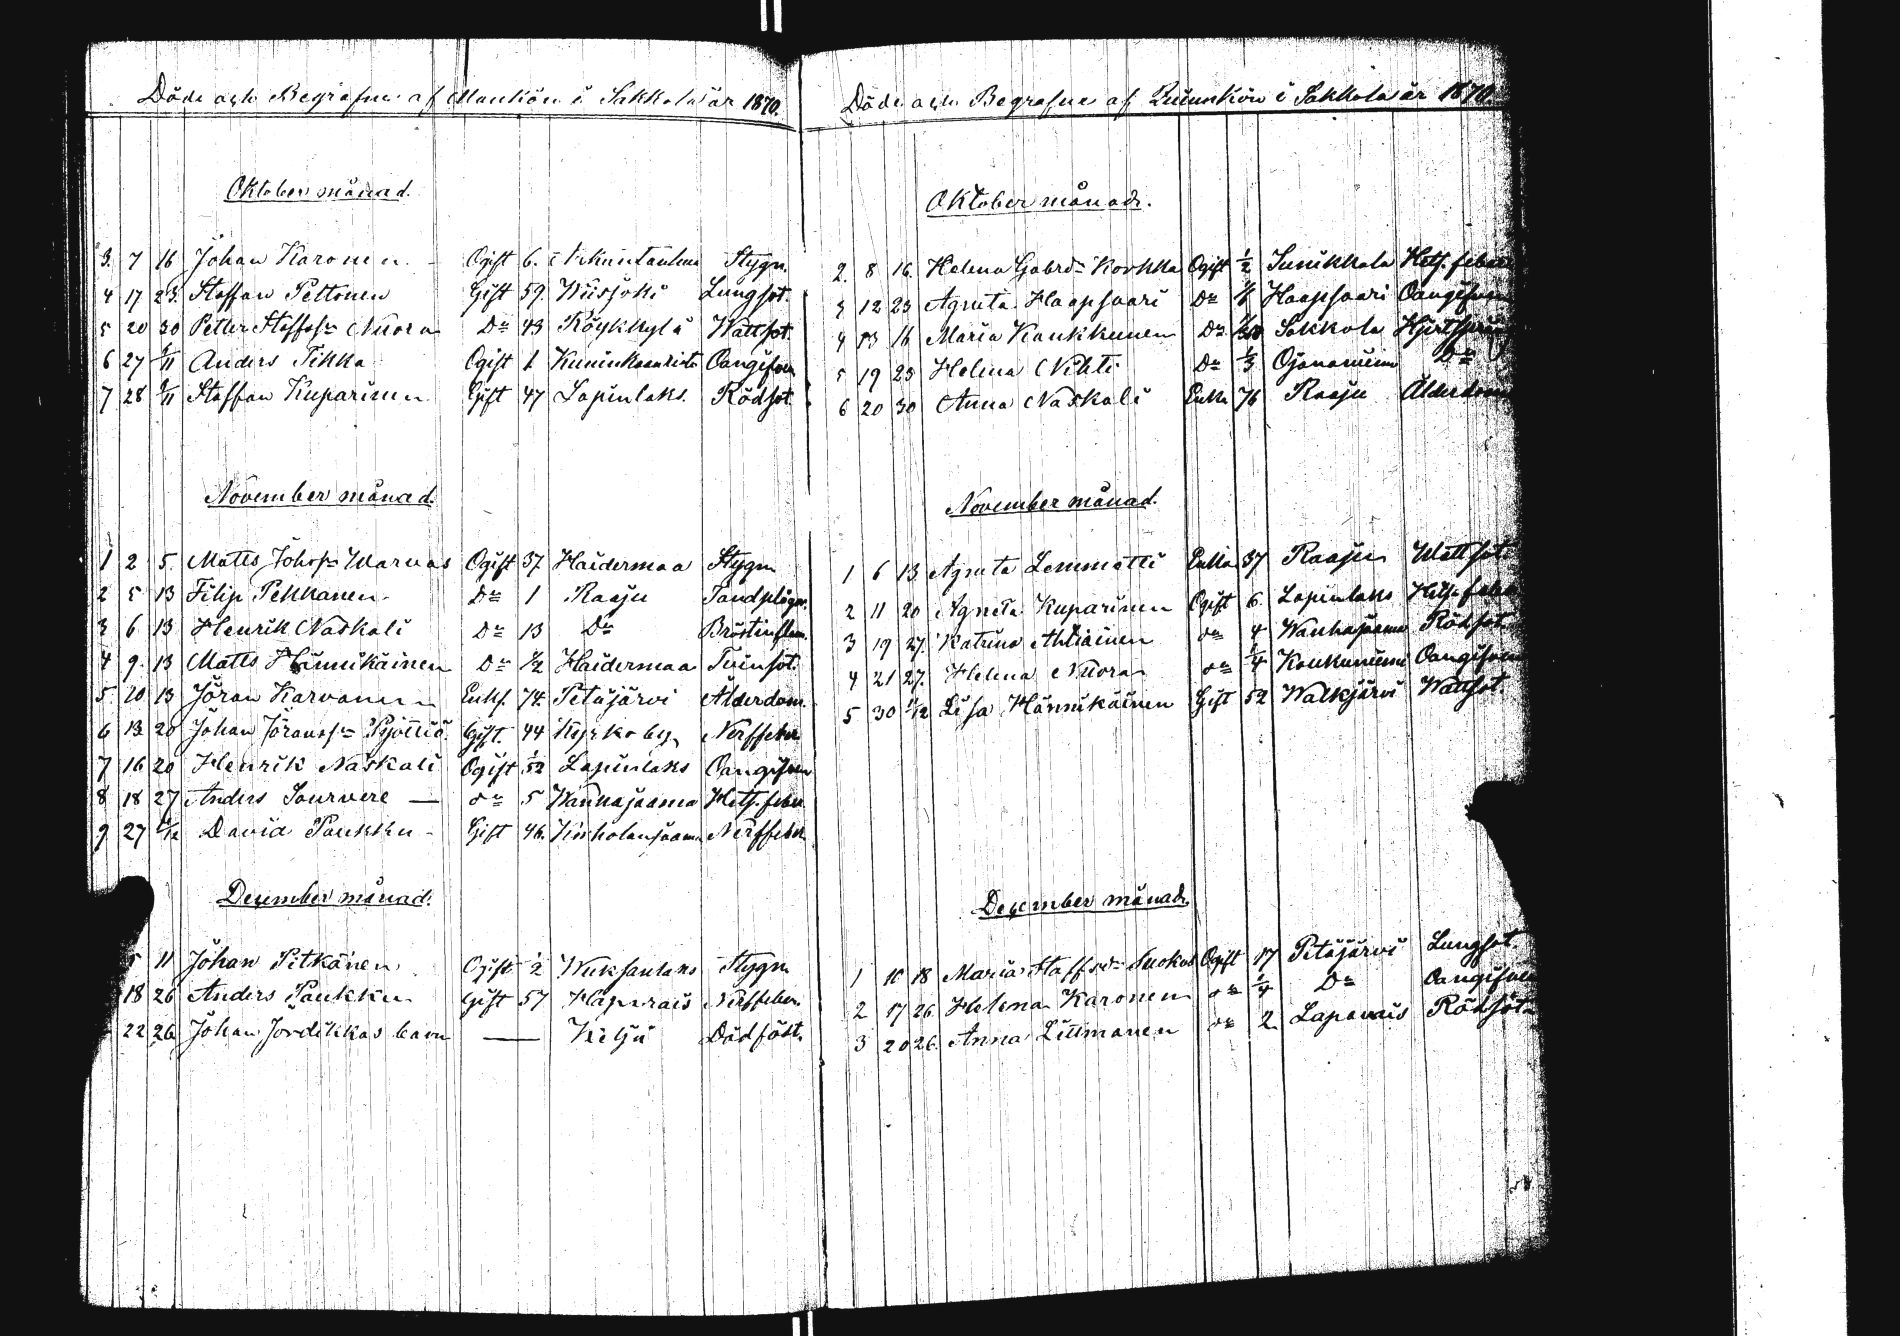 Döde och Begrafne af Mankön i Sakkola år 1870.
Oktober månad.
3. 7 16 Johan Karonen Ogift 6. Stygn.
4 17 23. Staffan Peltonen Gift 59. Wiisjoki Lungsot.
5 20 30 Petter Staffss. Nuora Do 43 Röykkylä Wattsot.
6 27 6/11 Anders Tikka Ogift 1 Kuninkaanristi Oangifven
7 28 6/11 Staffan Kuparinen Gift 47 Lapinlaks. Rödsot.
November månad.
1 2 5. Matts Johss. Warvas Ogift 37 Haidermaa Stygn
2 5 13 Filip Pekkanen Do 1 Raaju Tandplågn.
3 6 13 Henrik Naskali Do 13 Do Bröstinflam.
4 9. 13 Matts Hännikäinen Do 1/2 Haidermaa Tvinsot.
5. 10 13 Jöran Karvonen Enkl. 74. Petäjärvi Ålderdom.
6 13 20 Johan Jöranss. Gift. 44 Kyrkoby Nerffeber
7 16 20 Henrik Naskali Ogift 1/52 Lapinlaks Oangifven
8 18 27 Anders Sourvere — do 5 Wanhajaama Hets. feber
9. 27 4/12 David Paukku Gift 46. Kiiholanjaama Nerffeber
December månad.
5 11 Johan Pitkänen Ogift 1/2 Wuksanlaks Stygn
18 26 Anders Paukku Gift 57 Haparais Nerffeber.
22 26 Johan Jördikkas barn — Kelja Dödfödt.
Döde och Begrafne af Qvinnkön i Sakkola år 1870.
Oktober månad.
2. 8 16. Helena Gabrd. Korkka Ogift 1/2 Sunikkala Hets. feber
3 12 23 Agneta Haapsaari Do Haapsaari Oangifven
4 13 16 Maria Kaukkunen Do Sakkola
5 19 23 Helena Nihti Do 1/3 Ojananiemi Do
6 20 30 Anna Naskali Enka 76 Raaju Ålderdom
November månad.
1 6 13 Agneta Lemmetti Enka 37 Raaju Wattsot.
2 11 20 Agneta Kuparinen Ogift 6. Lapinlaks Hets. feber
3 19 27. Katrina Ahtiainen do 4 Wanhajaama Rödsot.
4 21 27. Helena Nuora do 1/4 Koukuniemi Oangifven
5 30 4/12 Lisa Hännikäinen Gift 52 Walkjärvi Wattsot.
December månad.
1 10 18 Maria Staffsd. Suokas Ogift 17 Petäjärvi Lungsot.
2 17 26. Helena Karonen do 1/4 Do Oangifven
3 20 26. Anna Littmanen do 2. Lapanais Rödsot